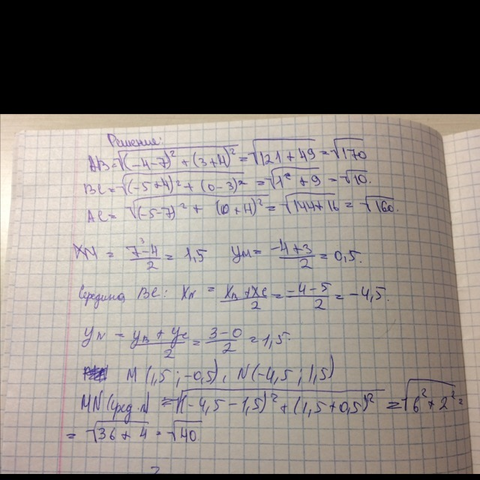 Решение:
AB=√(-4-7)²+(3+4)²=√121+49=√170
BC=√(-5+4)²+(0-3)²=√1²+9=√10.
AC=√(-5-7)²+(0+4)²=√144+16=√160.
XM = 7-4/2 = 1,5 YM = -4+3/2 = 0,5.
Середина BC: XN = XB+XC/2 = -4-5/2 = -4,5.
YN = YB+YC/2 = 3-0/2 = 1,5.
M(1,5; -0,5), N(-4,5; 1,5)
MN(сред. л) = √(-4,5-1,5)²+(1,5+0,5)² = √6²+2² =
= √36+4 = √40